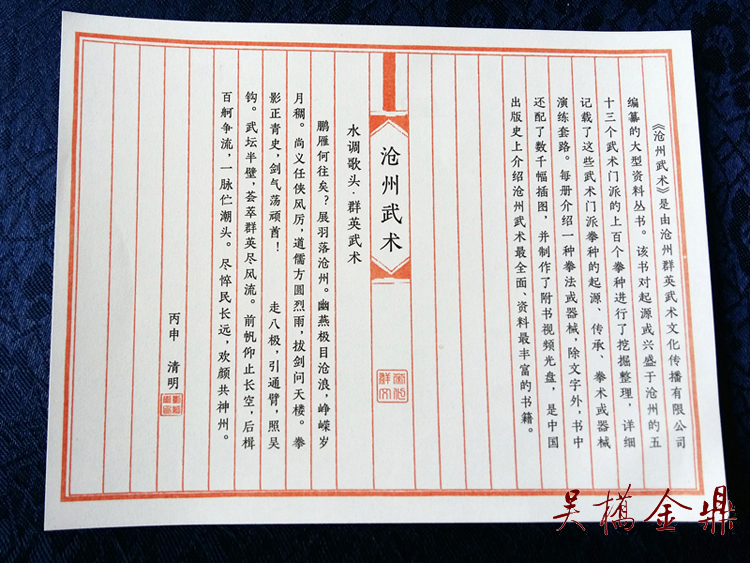 《沧州武术》是由沧州群英武术文化传播有限公司
编纂的大型资料丛书。该书对起源或兴盛于沧州的五
十三个武术门派的上百个拳种进行了挖掘整理，详细
记载了这些武术门派拳种的起源、传承、拳术或器械
演练套路。每册介绍一种拳法或器械，除文字外，书中
还配了数千幅插图，并制作了附书视频光盘，是中国
出版史上介绍沧州武术最全面、资料最丰富的书籍。
沧州武术
水调歌头·群英武术
鹏雁何往矣？展羽落沧州。幽燕极目沧浪，峥嵘岁
月稠。尚义任侠风厉，道儒方圆烈雨，拔剑问天楼。拳
影正青史，剑气荡顽酋！ 走八极，引通臂，照吴
钩。武坛半壁，荟萃群英尽风流。前帆仰止长空，后楫
百舸争流，一脉伫潮头。尽悴民长远，欢颜共神州。
丙申 清明
吴橋金鼎